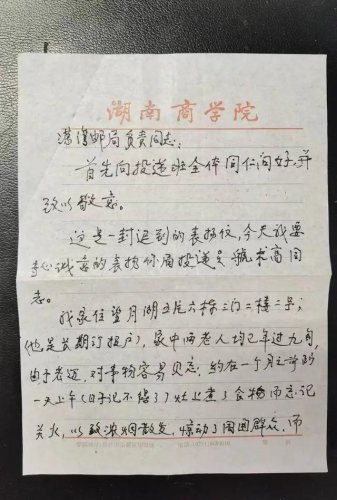 湖南商学院
溁湾邮局负责同志:
首先向投递班全体同仁问好,并
致以敬意。
这是一封迟到的表扬信,今天我要
诚意的表扬你局投递员 高同
志。
我家住望月湖五片六栋三门二楼二号,
(也是长期订报户),家中两老人均已年过九旬,
由于老迈,对事物容易忘志,约在一个月之前的
一天上午(日子记不清了)灶上煮了食物而忘记
关火,以致浓烟散发,惊动了周围群众,而